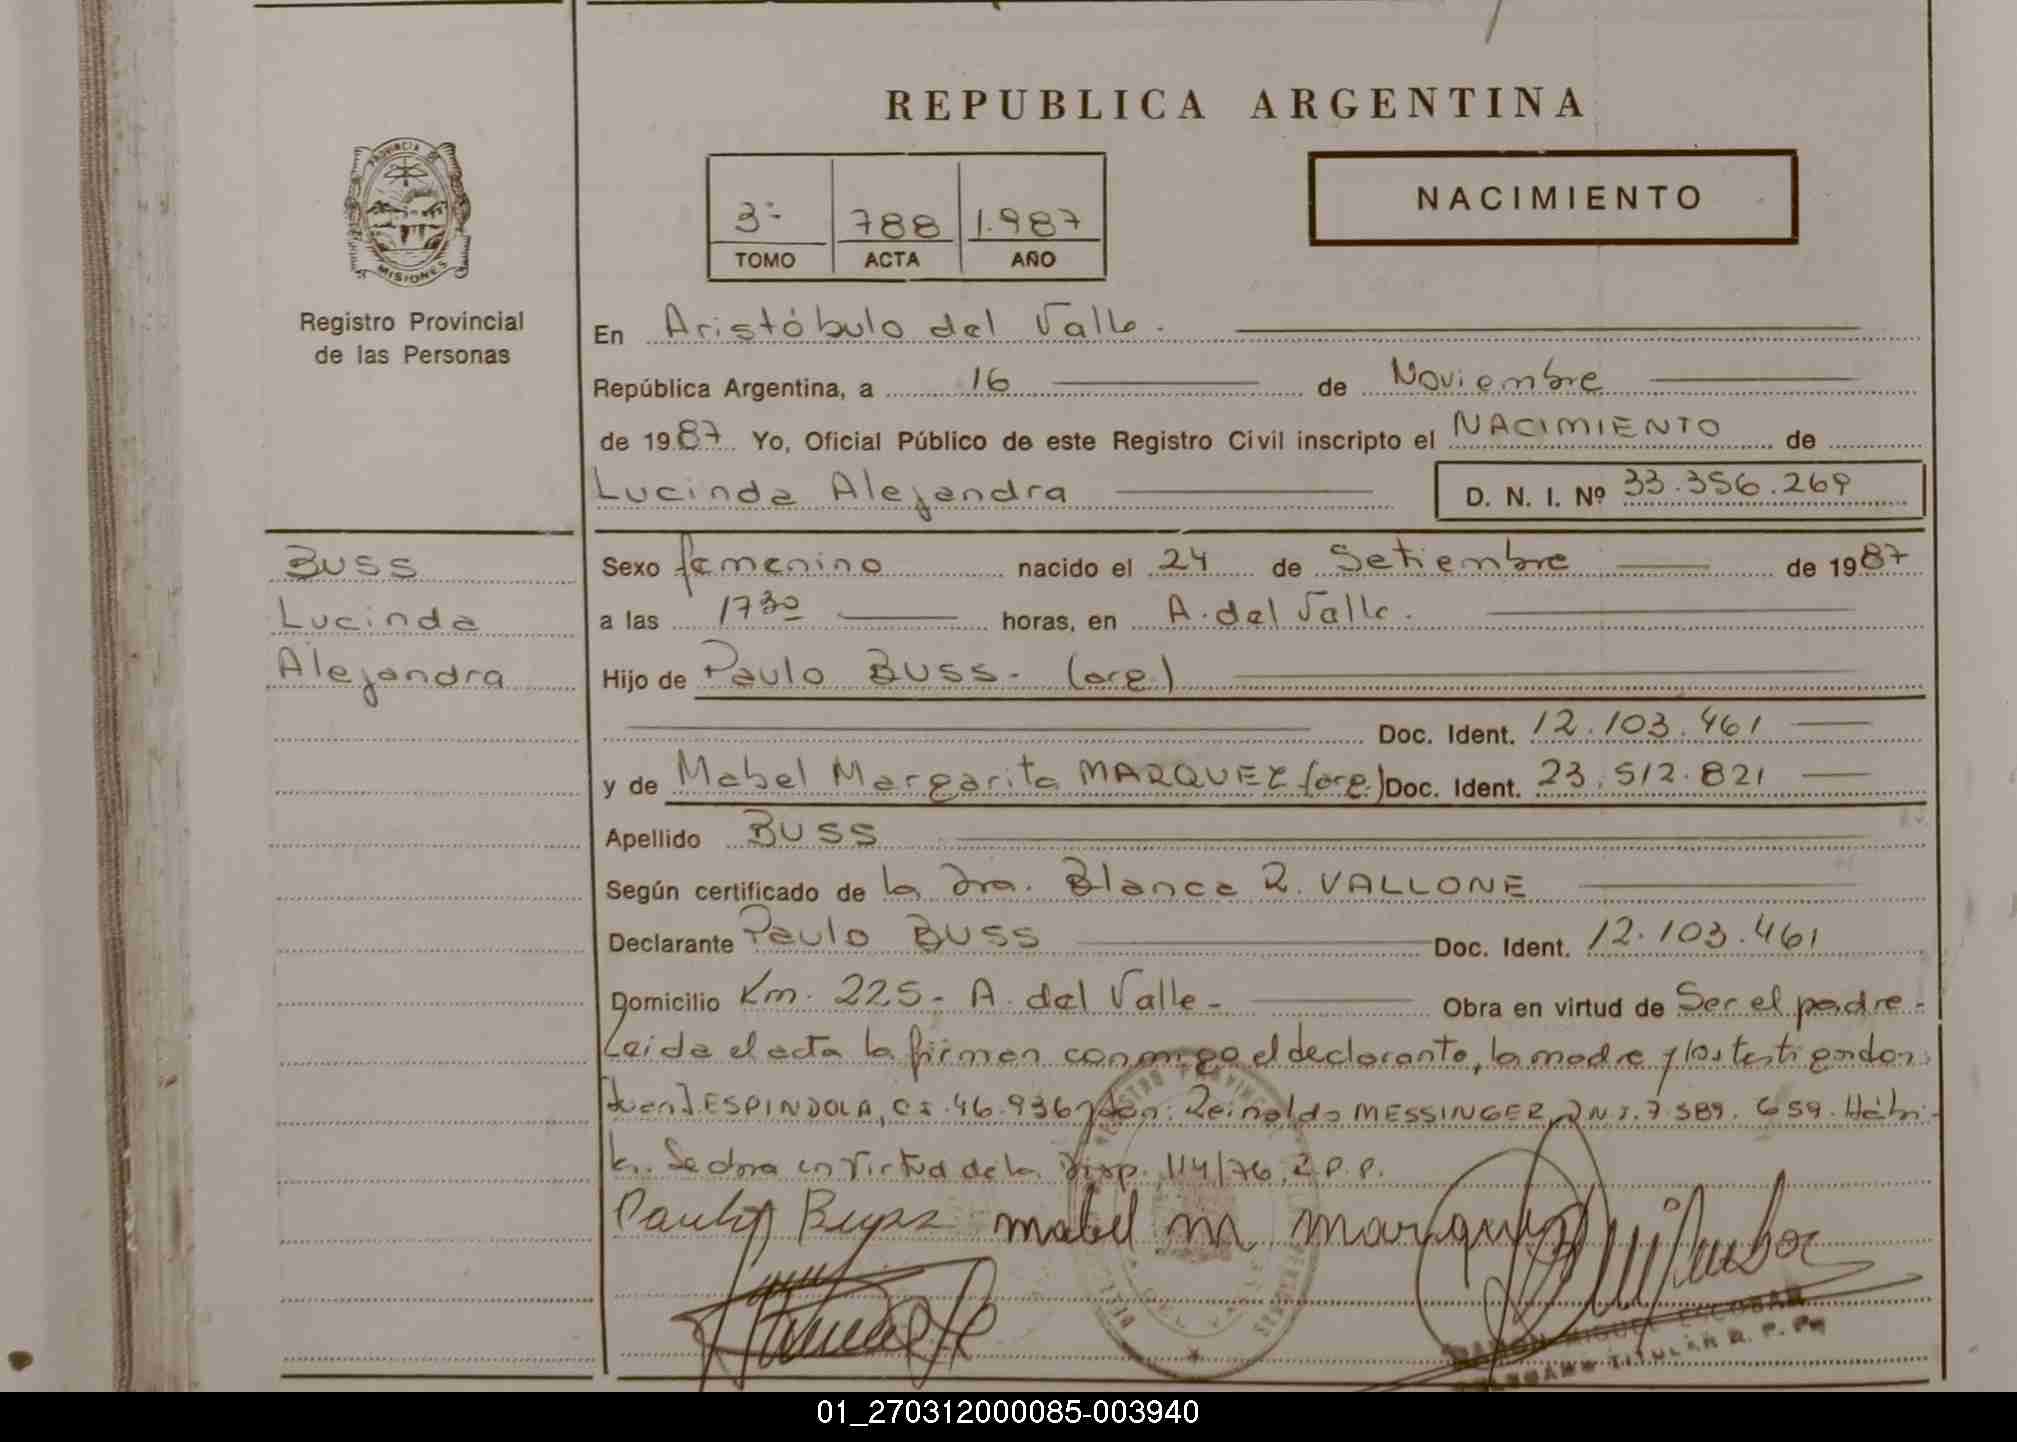 REPUBLICA ARGENTINA
PROVINCIA DE
MISIONES
Registro Provincial
de las Personas
3º 788 1.987
TOMO ACTA AÑO
NACIMIENTO
En Aristóbulo del Valle.
República Argentina, a 16 de Noviembre
de 1987 Yo, Oficial Público de este Registro Civil inscripto el NACIMIENTO de
Lucinda Alejandra D. N. I. Nº 33.356.269
BUSS
Lucinda
Alejandra
Sexo femenino nacido el 24 de Setiembre de 1987
a las 17 30 horas, en A. del Valle.
Hijo de Paulo BUSS- (arg)
Doc. Ident. 12.103.461
y de Mabel Margarita MARQUEZ (arg.) Doc. Ident. 23.512.821
Apellido BUSS
Según certificado de la Dra. Blanca R. VALLONE
Declarante Paulo BUSS Doc. Ident. 12.103.461
Domicilio Km. 225- A. del Valle- Obra en virtud de Ser el padre-
Leida el acta la firman conmigo el declarante, la madre y los testigos don
Juan J. ESPINDOLA, C.I. 46.936 y don: Reinaldo MESSINGER, D.N.I. 7.589.659. Hábi-
les. Se obra en virtud de la Disp. 114/76, R.P.P.
Paulo Buss mabel m marquez
RAMON MIGUEL ESCOBAR
DELEGADO TITULAR R. P. P.
01_270312000085-003940